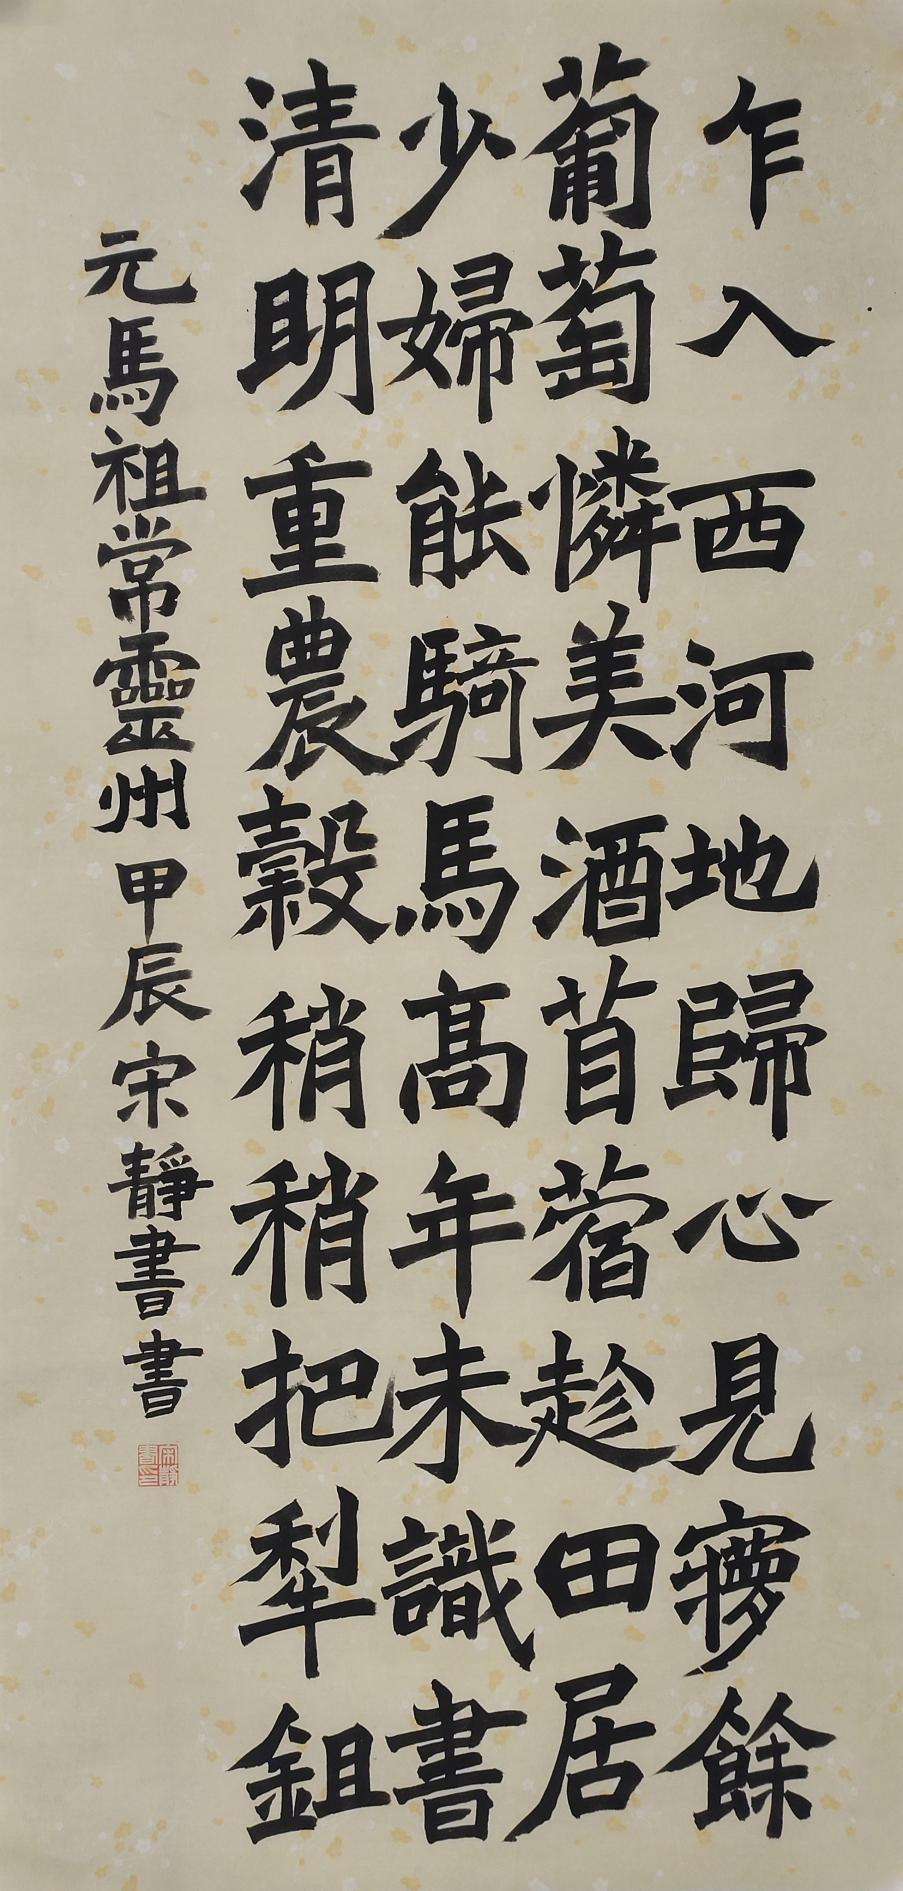 乍入西河地歸心見㝱餘
葡萄憐美酒苜蓿趁田居
少婦能騎馬髙年未識書
清明重農穀稍稍把犁鉏
元馬祖常靈州甲辰宋靜書書